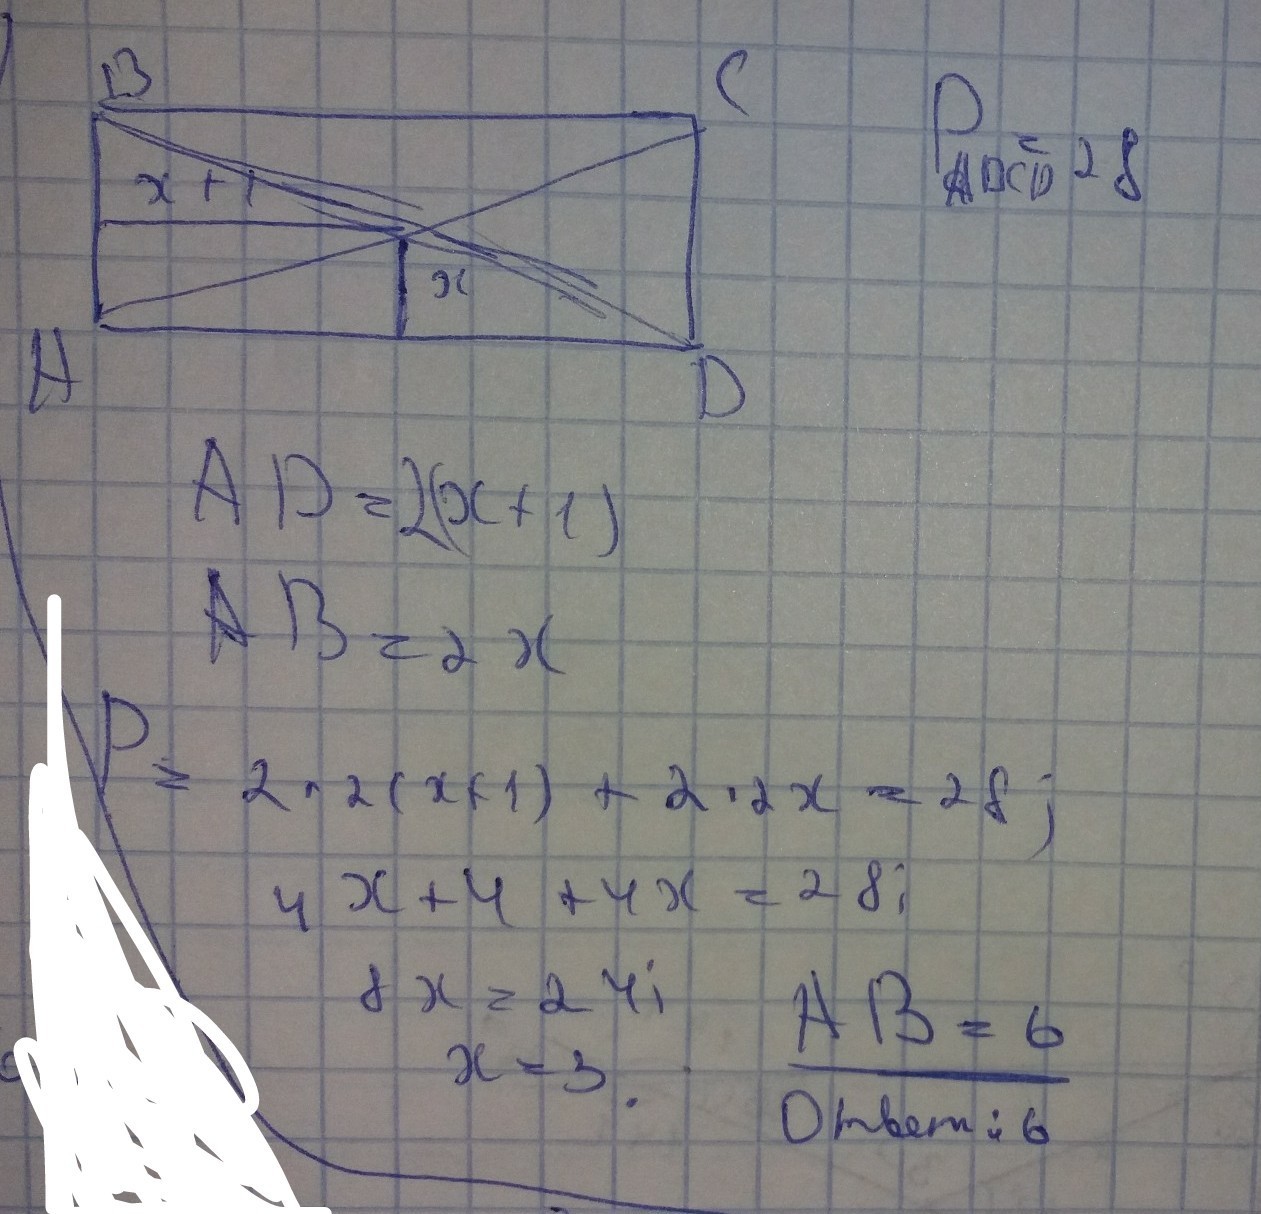 B
C
P ABCD = 28
x + 1
x
A
D
AD = 2(x + 1)
AB = 2x
P = 2 · 2(x+1) + 2 · 2x = 28;
4x + 4 + 4x = 28;
8x = 24;
x = 3.
AB = 6
Ответ: 6